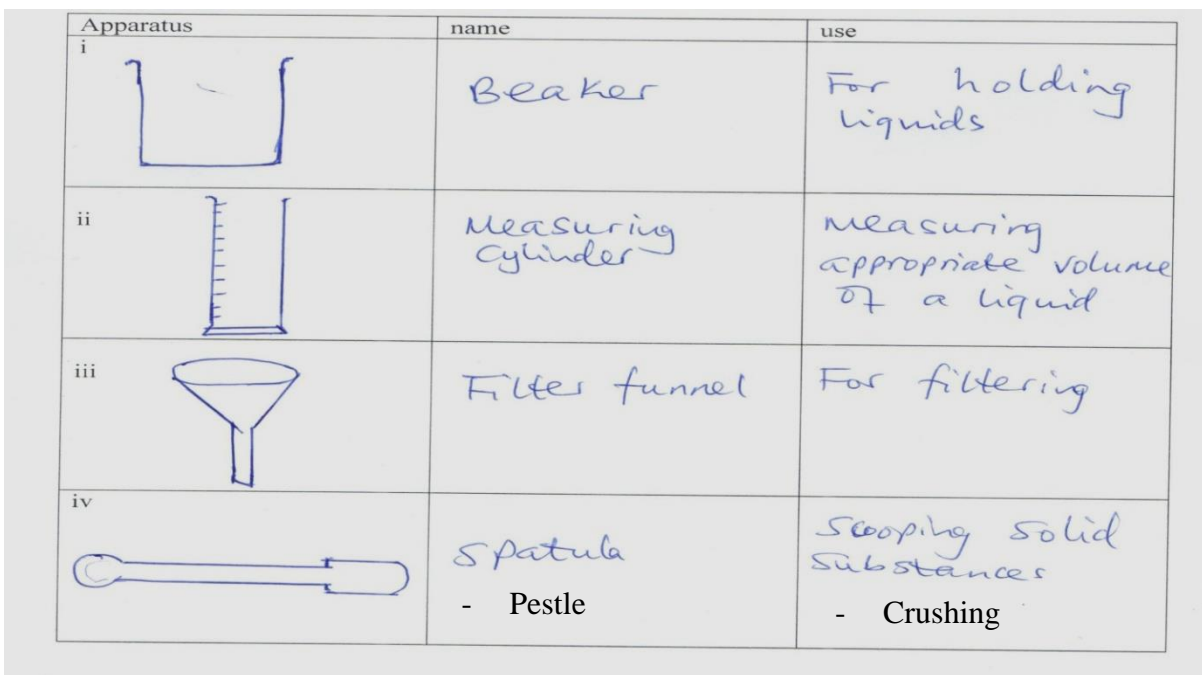 Apparatus name use
i
Beaker
For holding
liquids
ii
Measuring
Cylinder
Measuring
appropriate volume
of a liquid
iii
Filter funnel
For filtering
iv
Spatula
- Pestle
Scooping solid
substances
- Crushing